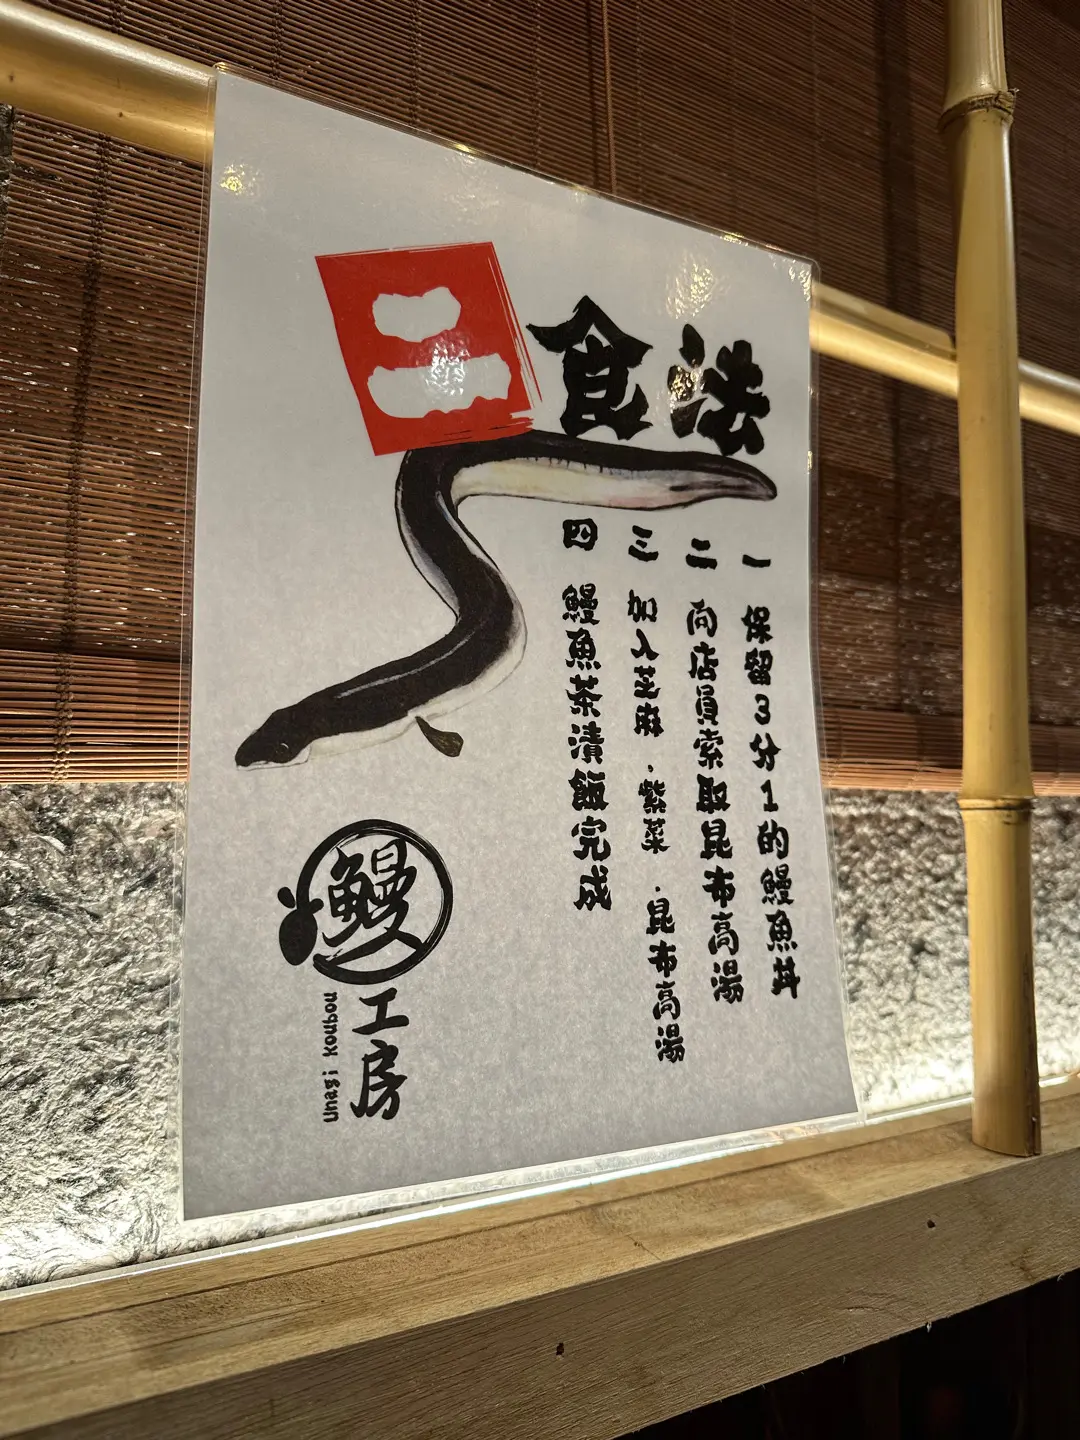 二食法
一 保留3分1的鰻魚丼
二 向店員索取昆布高湯
三 加入芝麻．紫菜．昆布高湯
四 鰻魚茶漬飯完成
鰻
工房
Unagi Koubou